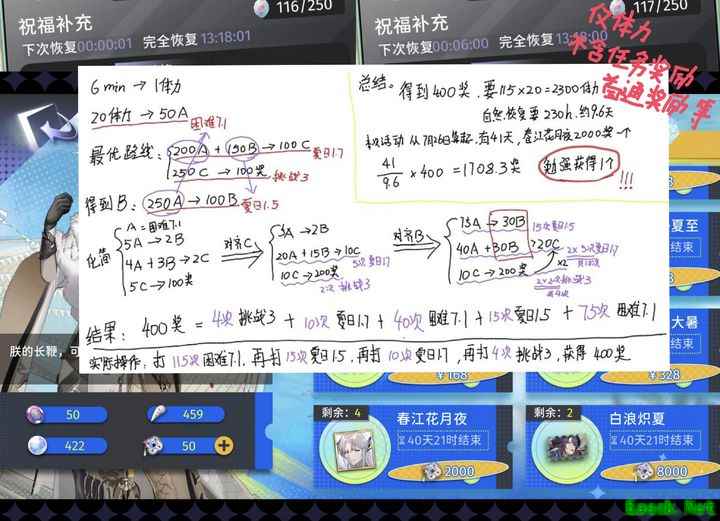 116/250
祝福补充
下次恢复00:00:01 完全恢复13:18:01
117/250
祝福补充
下次恢复00:06:00 完全恢复13:18:00
仅体力
不含任务奖励
普通奖励等
6min → 1体力
20体力 → 50A
困难7.1
最优路线:
200A + 150B → 100C 夏日1.7
250C → 100奖 挑战3
得到B: 250A → 100B 夏日1.5
总结。得到400奖,要115×20=2300体力
自然恢复要230h,约9.6天
本次活动从7月26日算起,有41天,春江花月夜2000奖一个
41/9.6 × 400 = 1708.3奖 勉强获得1个!!!
化简
A=困难7.1
5A → 2B
4A + 3B → 2C
5C → 100奖
对齐C
5A → 2B
20A + 15B → 10C 5次夏日1.7
10C → 200奖 2次挑战3
对齐B
75A → 30B 15次夏日1.5
40A + 30B → 20C 2×5次夏日1.7
×2 共10次
10C → 200奖 2×2次挑战3
共4次
结果: 400奖 = 4次挑战3 + 10次夏日1.7 + 40次困难7.1 + 15次夏日1.5 + 75次困难7.1
实际操作: 打115次困难7.1,再打15次夏日1.5,再打10次夏日1.7,再打4次挑战3,获得400奖
夏至
结束
大暑
结束
朕的长鞭,可
168
328
50
459
422
50
剩余:4
春江花月夜
40天21时结束
2000
剩余:2
白浪炽夏
40天21时结束
8000